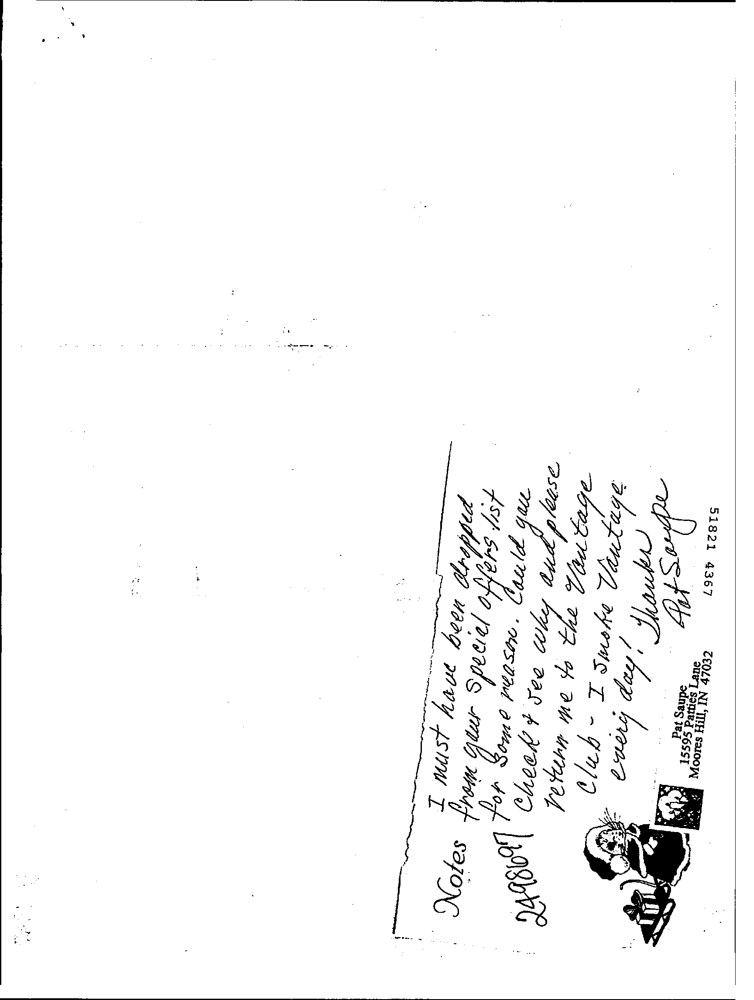 Notes
I must have been dropped
from your special offers list
for some reason. Could you
check & see why and please
return me to the Vantage
club - I smoke Vantage
every day! Thanks
Pat Saupe
Pat Saupe
15595 Patties Lane
Moores Hill, IN 47032
51821 4367